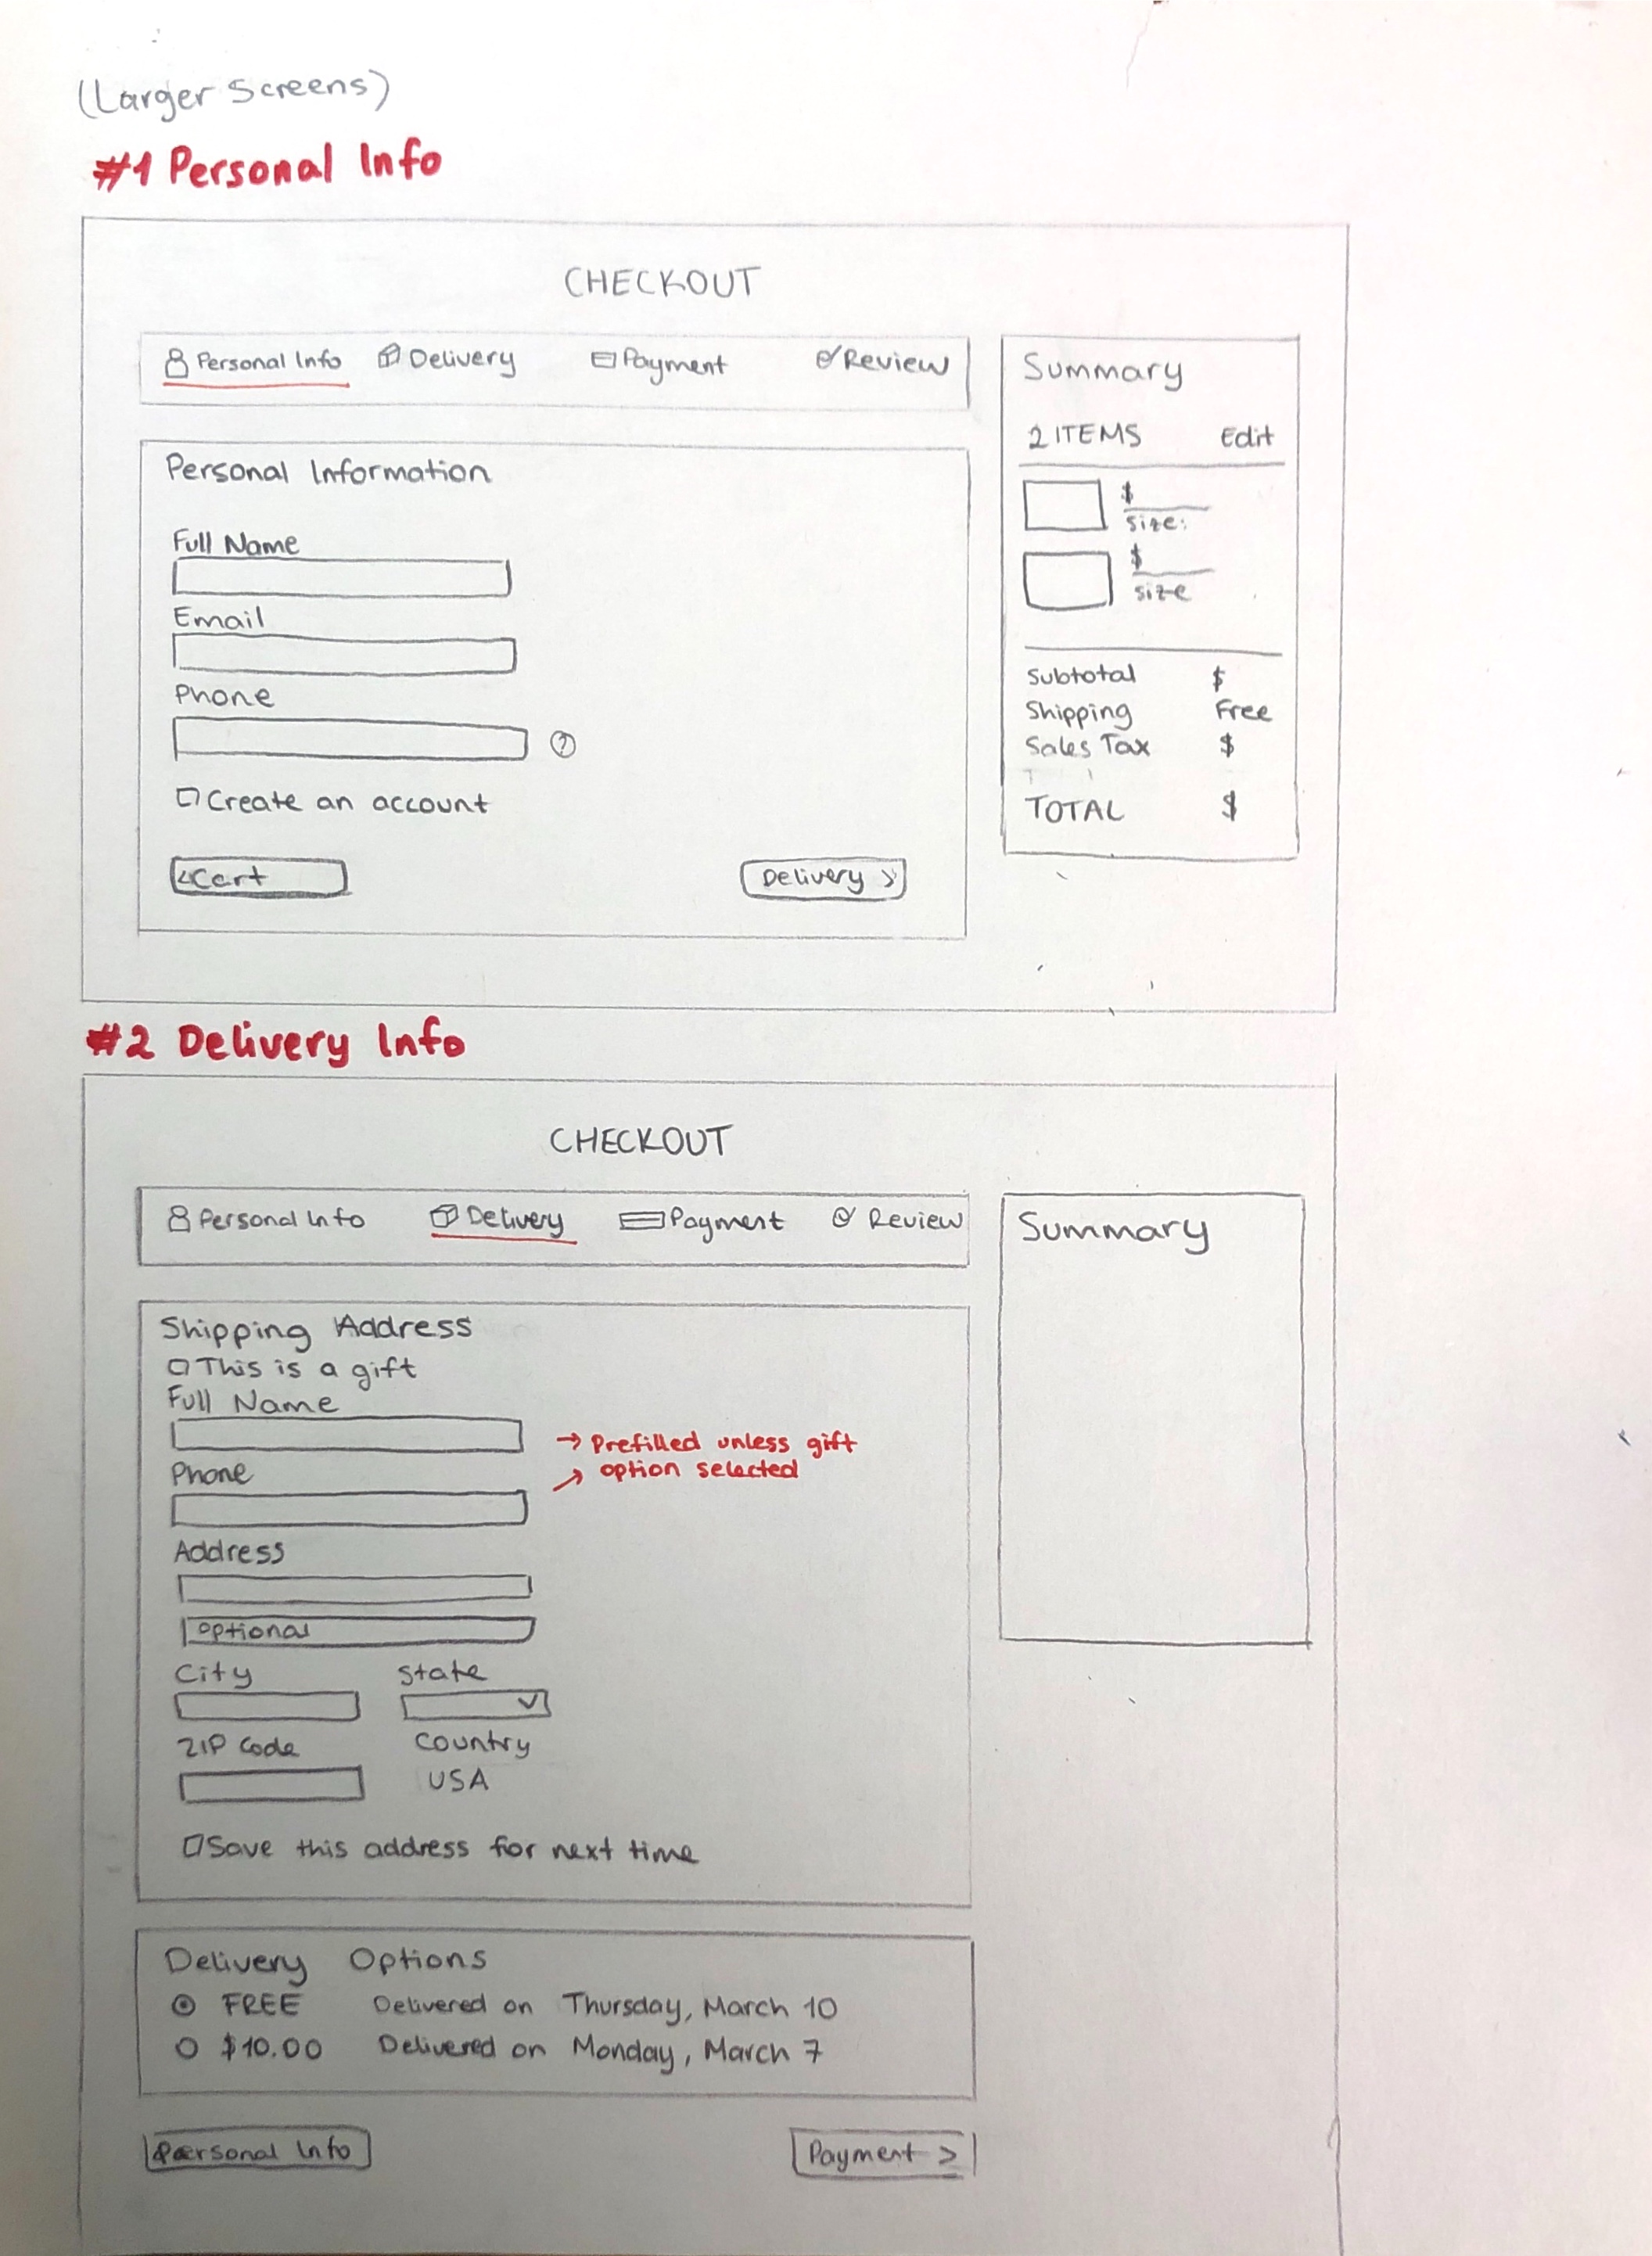 (Larger Screens)
#1 Personal Info
CHECKOUT
Personal Info Delivery Payment Review
Personal Information
Full Name
Email
Phone
?
Create an account
<Cart
Delivery >
Summary
2 ITEMS Edit
$
size:
$
size
Subtotal $
Shipping Free
Sales Tax $
TOTAL $
#2 Delivery Info
CHECKOUT
Personal Info Delivery Payment Review
Shipping Address
This is a gift
Full Name
→ Prefilled unless gift
→ option selected
Phone
Address
optional
City State
ZIP Code Country
USA
Save this address for next time
Summary
Delivery Options
FREE Delivered on Thursday, March 10
$10.00 Delivered on Monday, March 7
Personal Info
Payment >